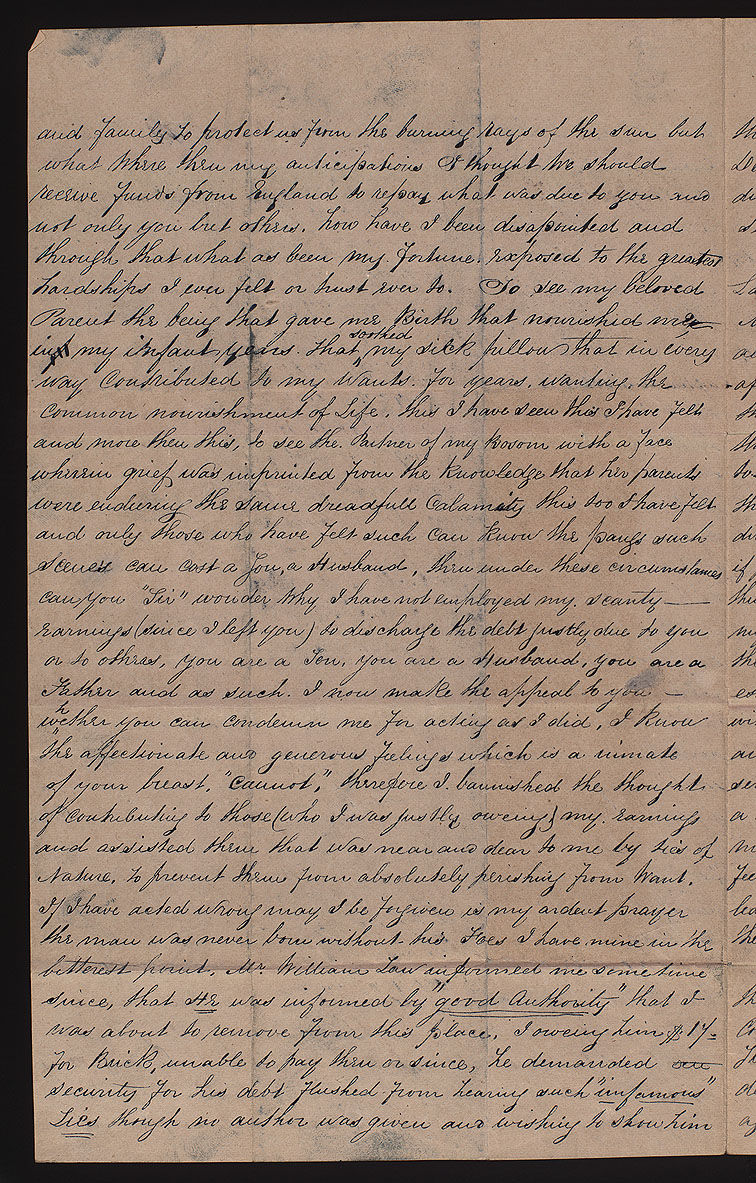 and family to protect us from the burning rays of the sun but
what where then my anticipations I thought We should
receive funds from England to repay what was due to you and
not only you but others. how have I been disapointed and
through that what as been my fortune. exposed to the greatest
hardships I ever felt or trust ever to. To see my beloved
Parent the being that gave me Birth that nourished me
in my infant years. that soothed my sick pillow that in every
way Contributed to my Wants. for years. wanting the
common nourishment of Life. this I have seen this I have felt
and more then this, to see the Partner of my Bosom with a face
wherein grief was imprinted from the Knowledge that her parents
were enduring the same dreadfull Calamity this too I have felt
and only those who have felt such can Know the pangs such
scenes can cost a Son, a Husband, then under these circumstances
can you "Sir" wonder Why I have not employed my. scanty —
earnings (since I left you) to discharge the debt justly due to you
or to others, you are a Son, you are a Husband, you are a
Father and as such. I now make the appeal to you —
wether you can condemn me for acting as I did, I know
the affectionate and generous feelings which is a inmate
of your breast, "cannot," therefore I bannished the thought
of contributing to those (who I was justly oweing) my. earning
and assisted them that was near and dear to me by ties of
Nature, to prevent them from absolutely perishing from Want.
If I have acted wrong may I be forgiven is my ardent prayer
the man was never born without his Foes I have mine in the
bitterest point, Mr. William Law informed me sometime
since, that He was informed by "good Authority" that I
was about to remove from this place, I oweing him $17=
for Brick, unable to pay then or since, he demanded
security for his debt flushed from hearing such "infamous"
Lies though no author was given and wishing to show him